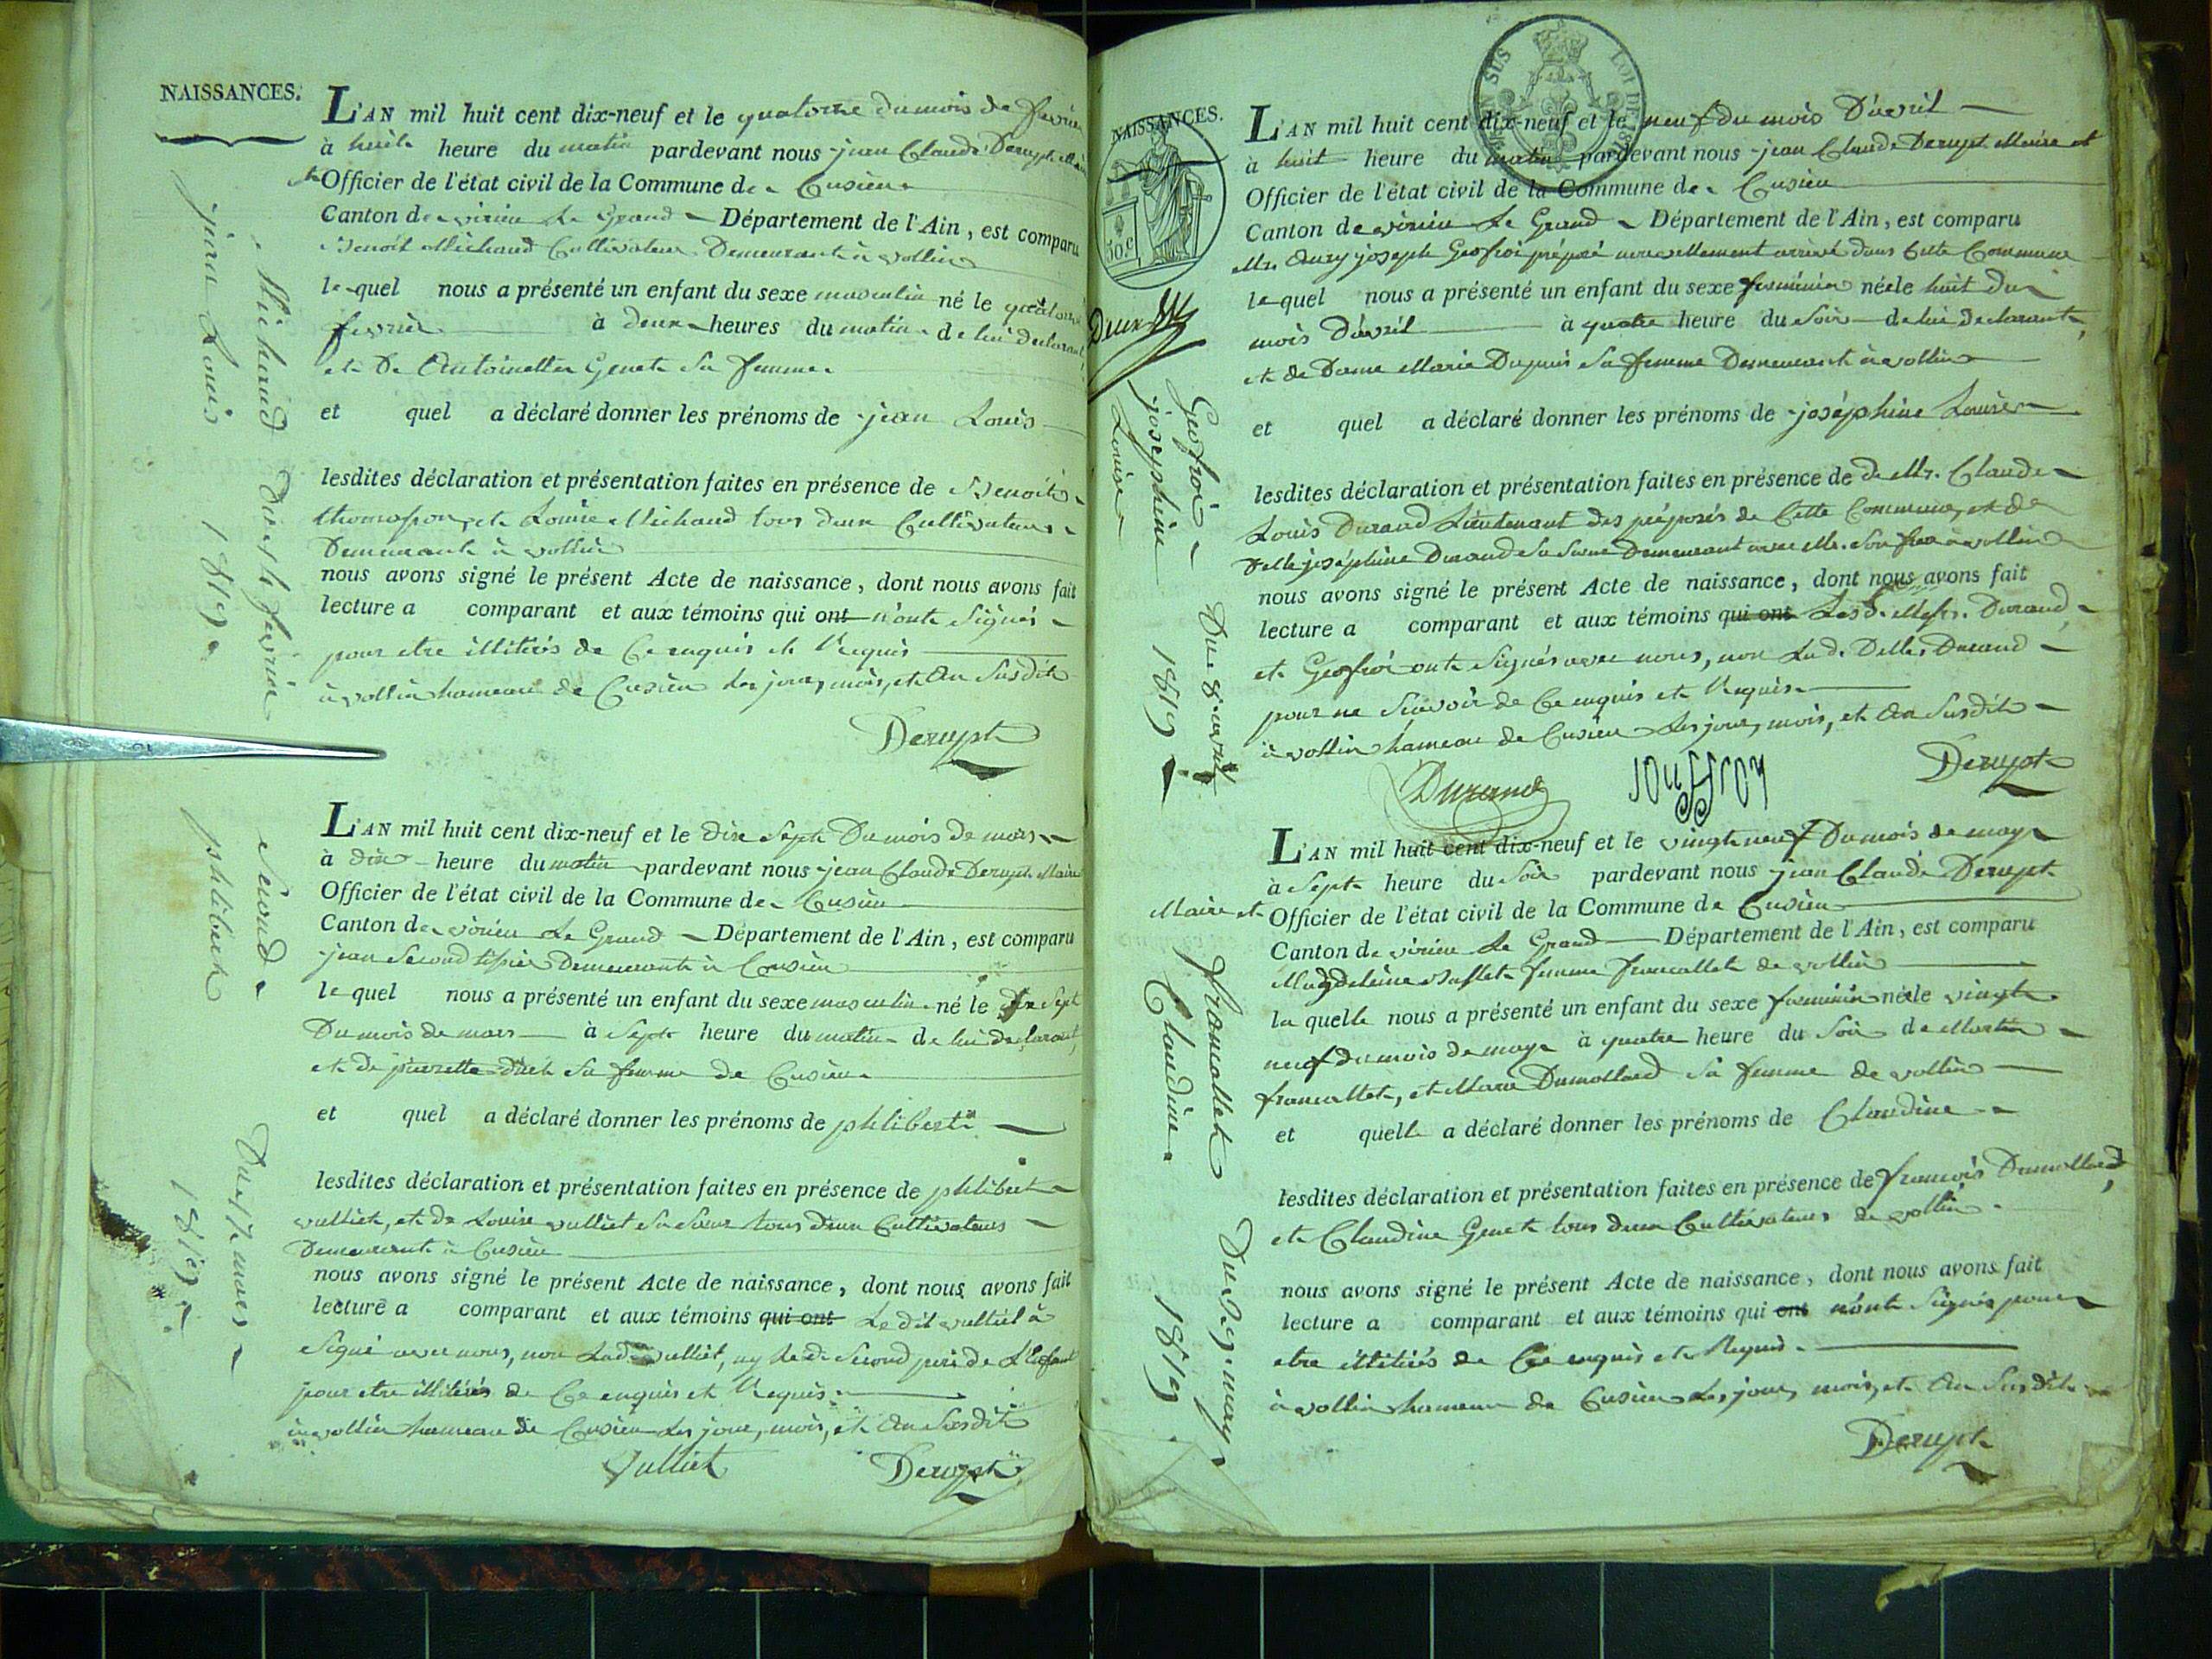 NAISSANCES.
L'AN mil huit cent dix-neuf et le quatorze du mois de fevrier
à huit heure du matin pardevant nous jean Claude Derupt Maire
et Officier de l'état civil de la Commune de Cusieu
Canton de virieu Le Grand Département de l'Ain, est comparu
Benoit Michaud Cultivateur Demeurant à vollin
le quel nous a présenté un enfant du sexe masculin né le quatorze
fevrier à deux heures du matin de lui declarant,
et De Antoinette Genet Sa femme
et quel a déclaré donner les prénoms de jean Louis
lesdites déclaration et présentation faites en présence de Benoit
thomasson, et Louise Michaud tous deux Cultivateurs
Demeurant à vollin
nous avons signé le présent Acte de naissance, dont nous avons fait
lecture a comparant et aux témoins qui ont n'ont Signés
pour etre illiterés de Ce enquis et Requis
à vollin hameau de Cusieu Les jour, mois, et An Susdit
Derupt
Michaud
jean Louis
Du 14 fevrier
1819.
L'AN mil huit cent dix-neuf et le dix Sept Du mois de mars
à dix heure du matin pardevant nous jean Claude Derupt Maire
Officier de l'état civil de la Commune de Cusieu
Canton de virieu Le Grand Département de l'Ain, est comparu
jean Second Demeurant à Cusieu
le quel nous a présenté un enfant du sexe masculin né le dix Sept
Du mois de mars à Sept heure du matin de lui declarant,
et de pierrette Sa femme de Cusieu
et quel a déclaré donner les prénoms de philibert
lesdites déclaration et présentation faites en présence de philibert
vulliet, et de Louise vulliet Sa Sœur tous deux Cultivateurs
Demeurant à Cusieu
nous avons signé le présent Acte de naissance, dont nous avons fait
lecture a comparant et aux témoins qui ont Le dit vulliet à
Signé avec nous, non Lad. vulliet, ny Le d. Second pere de L'Enfant
pour etre illiterés de Ce enquis et Requis.
à vollin hameau de Cusieu Les jour, mois, et An Susdit
Vulliet Derupt
Second
philibert
Du 17 mars
1819.
NAISSANCES.
50 c
LOI DE 1816
L'AN mil huit cent dix-neuf et le neuf du mois D'avril
à huit heure du matin pardevant nous jean Claude Derupt Maire et
Officier de l'état civil de la Commune de Cusieu
Canton de virieu Le Grand Département de l'Ain, est comparu
Mr. joseph Geofroi préposé nouvellement arrivé dans Cette Commune
le quel nous a présenté un enfant du sexe feminin née le huit du
mois D'avril à quatre heure du Soir de lui declarant,
et de Dame Marie Dupuis Sa femme Demeurant à vollin
et quel a déclaré donner les prénoms de joséphine Louise
lesdites déclaration et présentation faites en présence de de Mr. Claude
Louis Durand Lieutenant des préposés de Cette Commune, et de
Delle joséphine Durand Sa Sœur Demeurant avec Mr. Son frere à vollin
nous avons signé le présent Acte de naissance, dont nous avons fait
lecture a comparant et aux témoins qui ont Les d. Durand,
et Geofroi ont Signés avec nous, non La d. Delle Durand
pour ne Scavoir de Ce enquis et Requis
à vollin hameau de Cusieu Les jour, mois, et An Susdit
Durand jouffroy Derupt
Geofroi
joséphine
Louise
Du 8 avril
1819
L'AN mil huit cent dix-neuf et le vingt neuf Du mois de may
à Sept heure du Soir pardevant nous jean Claude Derupt
Maire et Officier de l'état civil de la Commune de Cusieu
Canton de virieu Le Grand Département de l'Ain, est comparu
Magdeleine femme francallet de vollin
la quelle nous a présenté un enfant du sexe feminin née le vingt
neuf du mois de may à quatre heure du Soir de Martin
francallet, et Marie Dumollard Sa femme de vollin
et quelle a déclaré donner les prénoms de Claudine
lesdites déclaration et présentation faites en présence de françois Dumollard,
et Claudine Genet tous deux Cultivateurs de vollin.
nous avons signé le présent Acte de naissance, dont nous avons fait
lecture a comparant et aux témoins qui ont n'ont Signés pour
etre illiterés de Ce enquis et Requis.
à vollin hameau de Cusieu Les jour, mois, et An Susdit
Derupt
francallet
Claudine
Du 29 may
1819